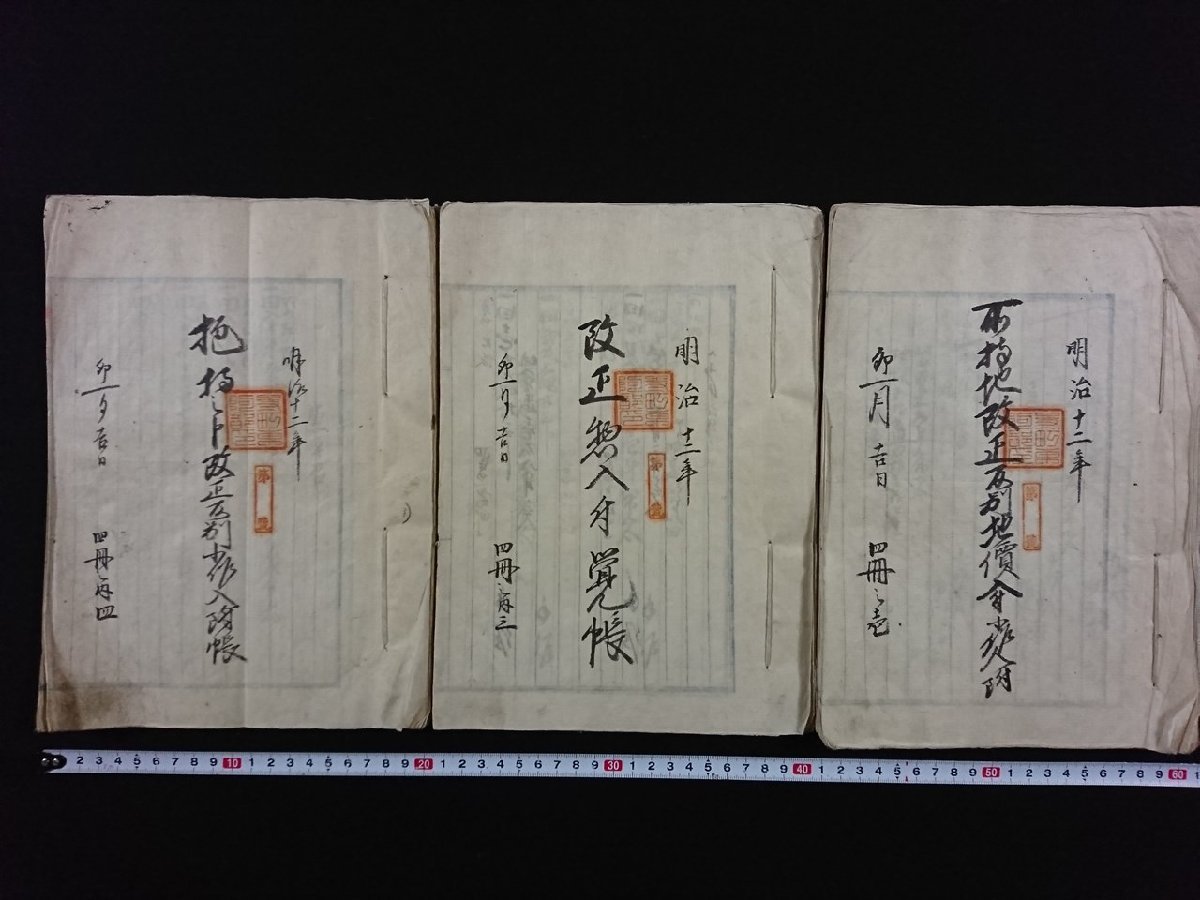 明治十二年
所持地改正反別地價金小作入附
卯一月吉日
四冊之壱
明治十二年
改正惣入付覚帳
卯一月吉日
四冊之内三
明治十二年
抱持之卜改正反別小作入附帳
卯一月吉日
四冊之内四
2 3 4 5 6 7 8 9 10 1 2 3 4 5 6 7 8 9 20 1 2 3 4 5 6 7 8 9 30 1 2 3 4 5 6 7 8 9 40 1 2 3 4 5 6 7 8 9 50 1 2 3 4 5 6 7 8 9 60 1